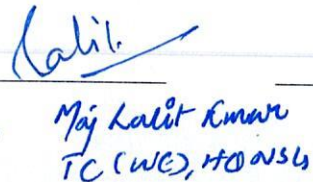 Lalit
Maj Lalit Kumar
TC (WE), HQ NSG